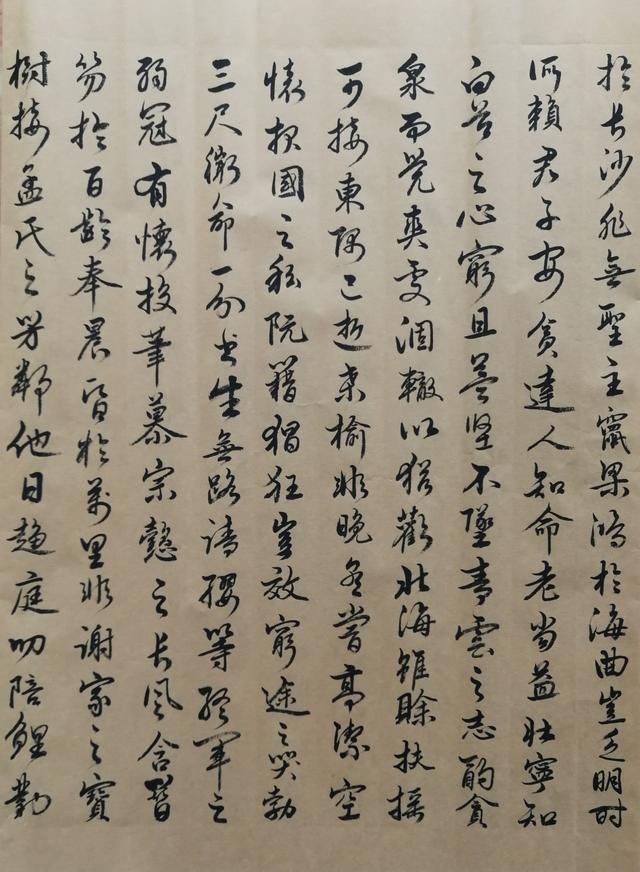 於長沙非無聖主竄梁鴻於海曲豈乏明時
所賴君子安貧達人知命老當益壯寧知
白首之心窮且益堅不墜青雲之志酌貪
泉而覺爽處涸轍以猶歡北海雖賒扶搖
可接東隅已逝桑榆非晚孟嘗高潔空
懷報國之阮籍猖狂豈效窮途之哭勃
三尺微命一介書生無路請纓等終軍之
弱冠有懷投筆慕宗慤之長風舍簪
笏於百齡奉晨昏於萬里非謝家之寶
樹接孟氏之芳鄰他日趨庭叨陪鯉對